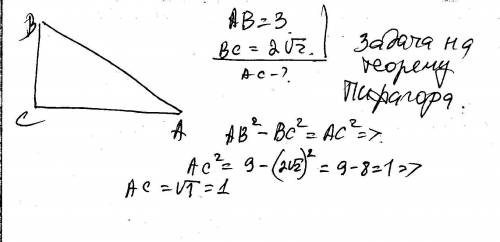 B
C
A
AB=3
BC = 2√2.
AC-?
Задача на
теорему
Пифагора.
AB²-BC²=AC²=>
AC²= 9-(2√2)²=9-8=1=>
AC =√1=1